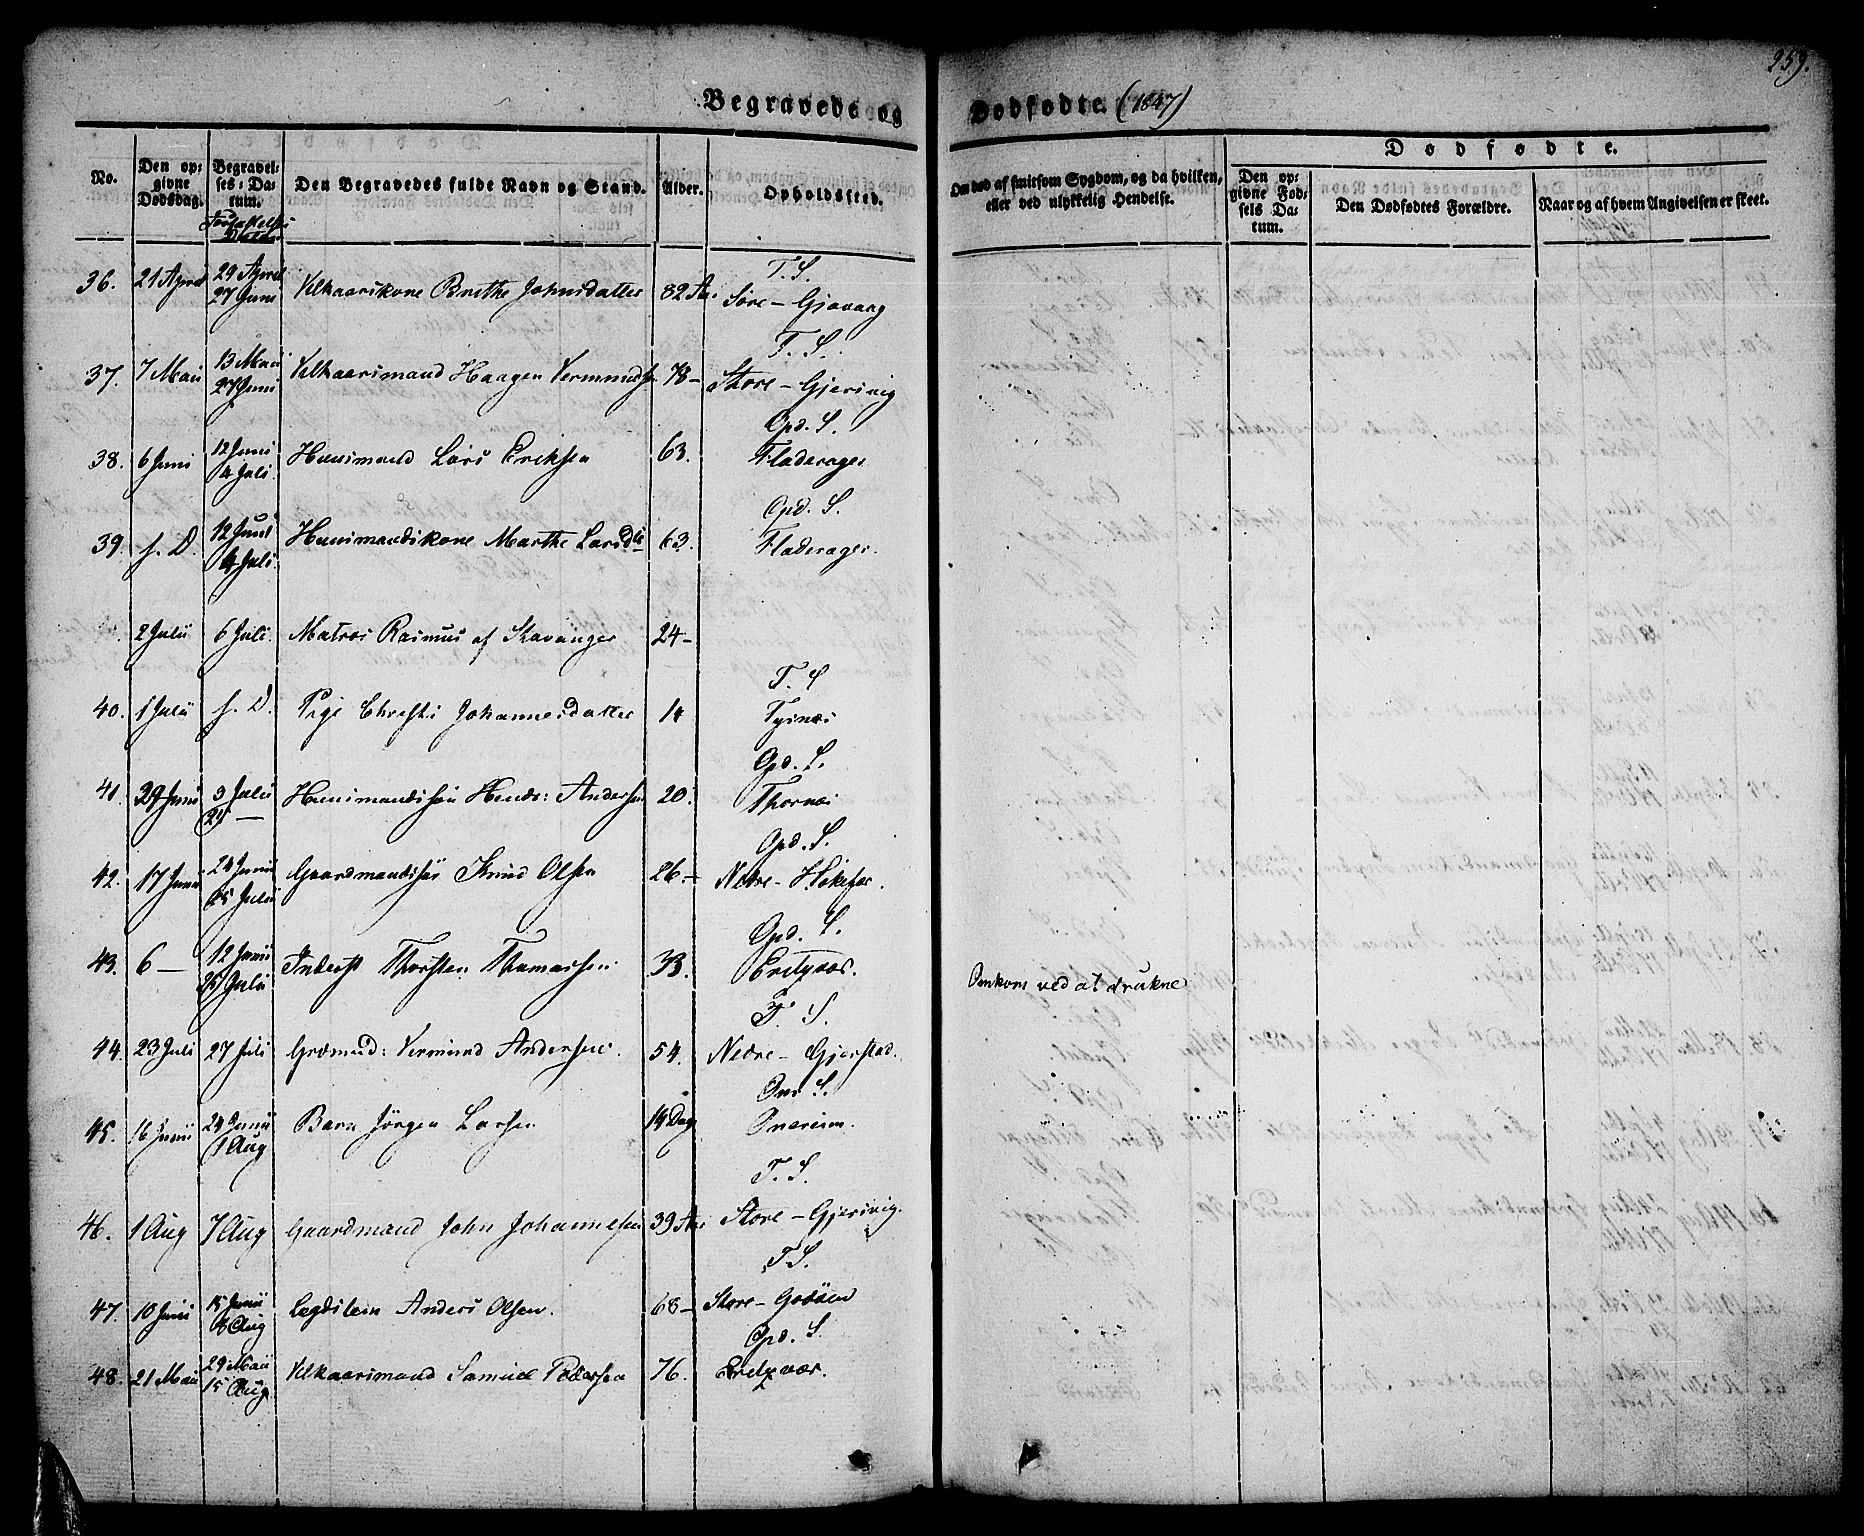 259.
Begravede og Dødfødte. (1847)
No.
Den opgivne Dødsdag.
Begravelses-Datum.
Jordfæstelses Datum
Den Begravedes fulde Navn og Stand.
Alder.
Opholdssted.
Om død af smitsom Sygdom, og da hvilken, eller ved ulykkelig Hendelse.
Dødfødte.
Den opgivne Fødsels Datum.
Den Dødfødtes Forældre.
Naar og af hvem Angivelsen er skeet.
T. S.
36. 21 April 29 April 27 Juni Velkaarskone Brithe Johnsdatter 82 Aar Søre-Gjøvaag
T. S.
37. 7 Maii 13 Maii 27 Juni Velkaarsmand Haagen Vermunds 78- Store-Gjersvig
Opd. S.
38. 6 Juni 12 Juni 4 Juli Huusmand Lars Eriksen 63. Fladerager
Opd. S.
39. s. D. 12 Juni 4 Juli Huusmandskone Marthe Larsdt 63. Fladerager.
2 Julii 6 Juli Matros Rasmus af Stavanger 24-
T. S
40. 1 Julii s. D. Pige Christi Johannesdatter 14 Tysnæs
Opd. S.
41. 29 Junii 3 Julii 24 — Huusmandssøn Hendr: Andersen 20. Thornæs
Opd. S.
42. 17 Junii 24 Junii 25 Julii Gaardmandssøn Knud Olsen 26.- Nedre-
Opd. S.
43. 6 — 12 Junii 25 Julii Inderst Thorsten Thomassen 33. Omkom ved at drukne
T. S.
44. 23 Juli 27 Juli Grdmnd: Vermund Andersen. 54. Nedre-Gjerstad.
S.
45. 16 Junii 24 Junii 1 Aug Barn Jørgen Larsen 14 Dage
T. S.
46. 1 Aug 7 Aug Gaardmand John Johannesen 39 Aar Store-Gjersvig.
T. S.
47. 10 Junii 15 Junii 8 Aug Lægdslem Anders Olsen. 68- Store-Godøen
Opd. S.
48. 21 Maii 29 Maii 15 Aug Velkaarsmand Samuel Pedersen 76.